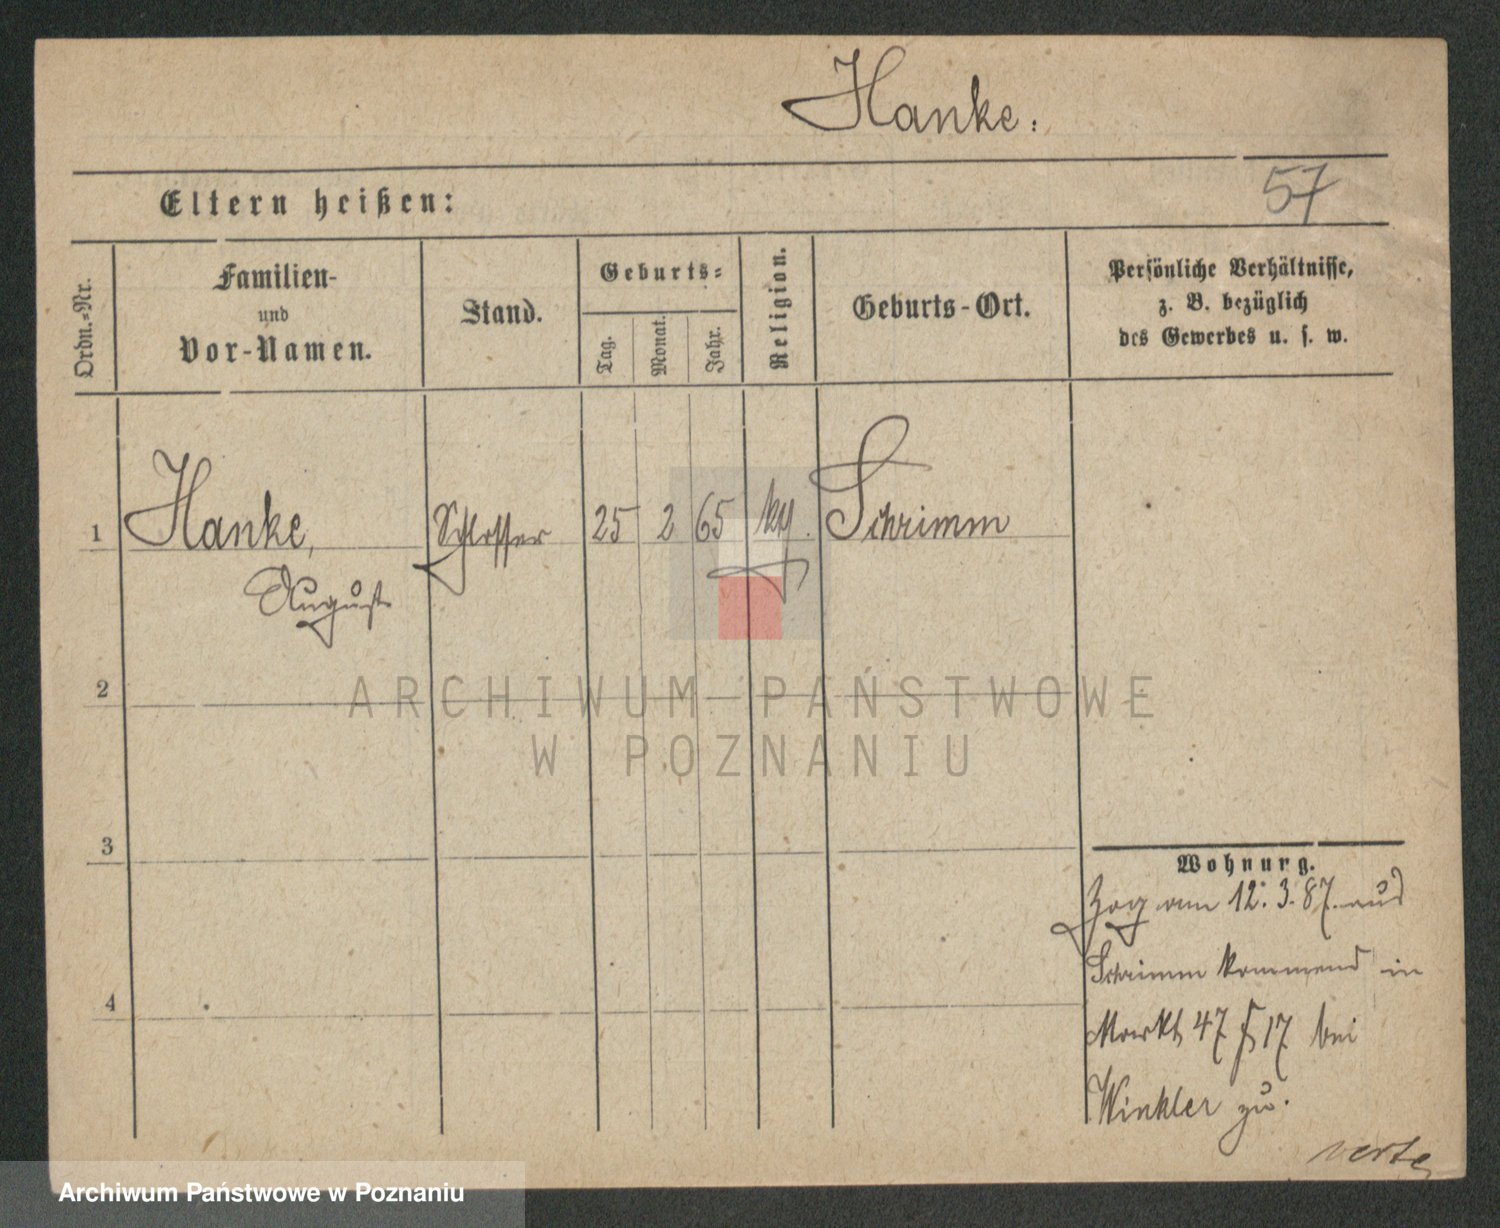 Hanke.
57
Eltern heißen:
Ordn.=Nr.
Familien-
und
Vor-Namen.
Stand.
Geburts=
Tag.
Monat.
Jahr.
Religion.
Geburts-Ort.
Persönliche Verhältnisse,
z. B. bezüglich
des Gewerbes u. s. w.
1 Hanke, Schlosser 25 2 65 Schrimm
August
2
ARCHIWUM PAŃSTWOWE
W POZNANIU
3
Wohnung.
Zog am 12. 3. 87. aus
Schrimm kommend in
Markt 47 17 bei
Winkler zu.
4
verte
Archiwum Państwowe w Poznaniu